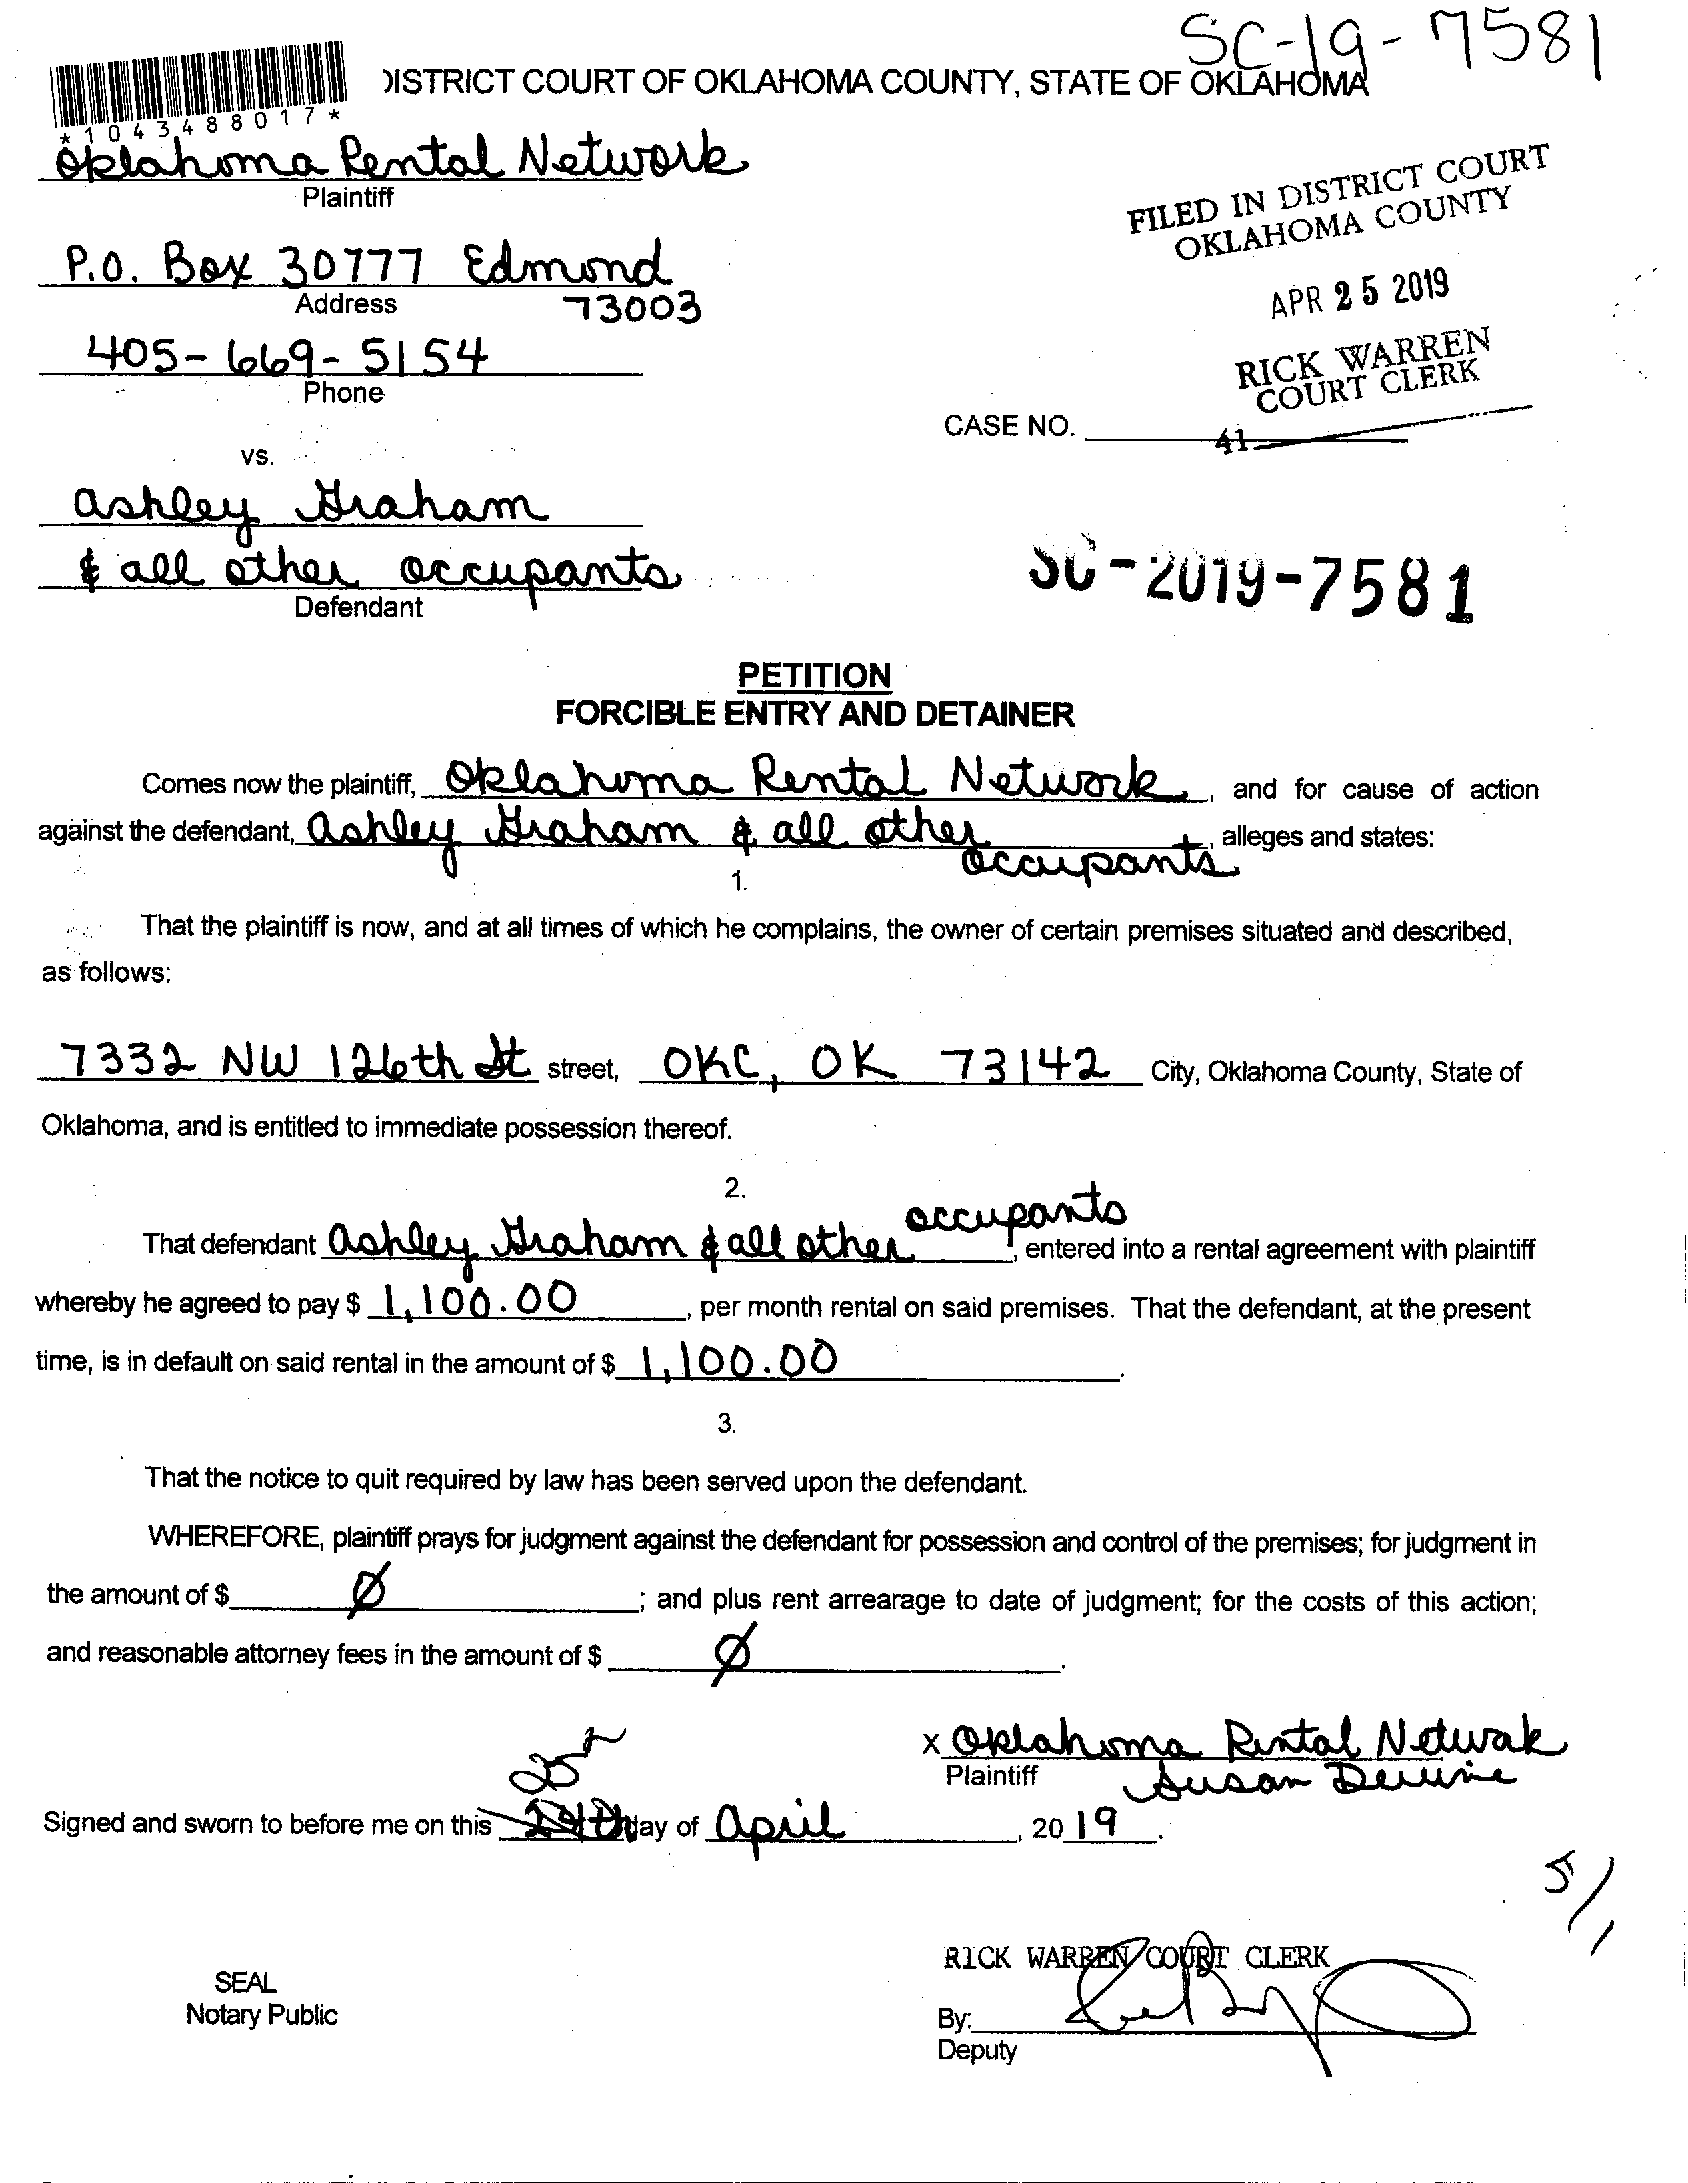 SC-19-7581
DISTRICT COURT OF OKLAHOMA COUNTY, STATE OF OKLAHOMA
*1043488017*
Oklahoma Rental Network
Plaintiff
FILED IN DISTRICT COURT
OKLAHOMA COUNTY
P.O. Box 30777 Edmond
Address 73003
APR 25 2019
405-669-5154
Phone
RICK WARREN
COURT CLERK
CASE NO.
41
vs.
Ashley Graham
& all other occupants
Defendant
SC-2019-7581
PETITION
FORCIBLE ENTRY AND DETAINER
Comes now the plaintiff, Oklahoma Rental Network, and for cause of action
against the defendant, Ashley Graham & all other occupants, alleges and states:
1.
That the plaintiff is now, and at all times of which he complains, the owner of certain premises situated and described,
as follows:
7332 NW 126th St street, OKC, OK 73142 City, Oklahoma County, State of
Oklahoma, and is entitled to immediate possession thereof.
2.
That defendant Ashley Graham & all other occupants, entered into a rental agreement with plaintiff
whereby he agreed to pay $ 1,100.00, per month rental on said premises. That the defendant, at the present
time, is in default on said rental in the amount of $ 1,100.00.
3.
That the notice to quit required by law has been served upon the defendant.
WHEREFORE, plaintiff prays for judgment against the defendant for possession and control of the premises; for judgment in
the amount of $ Ø; and plus rent arrearage to date of judgment; for the costs of this action;
and reasonable attorney fees in the amount of $ Ø.
x Oklahoma Rental Network
Plaintiff Susan
25
Signed and sworn to before me on this 24th day of April, 2019.
RICK WARREN COURT CLERK
SEAL
Notary Public
By:
Deputy